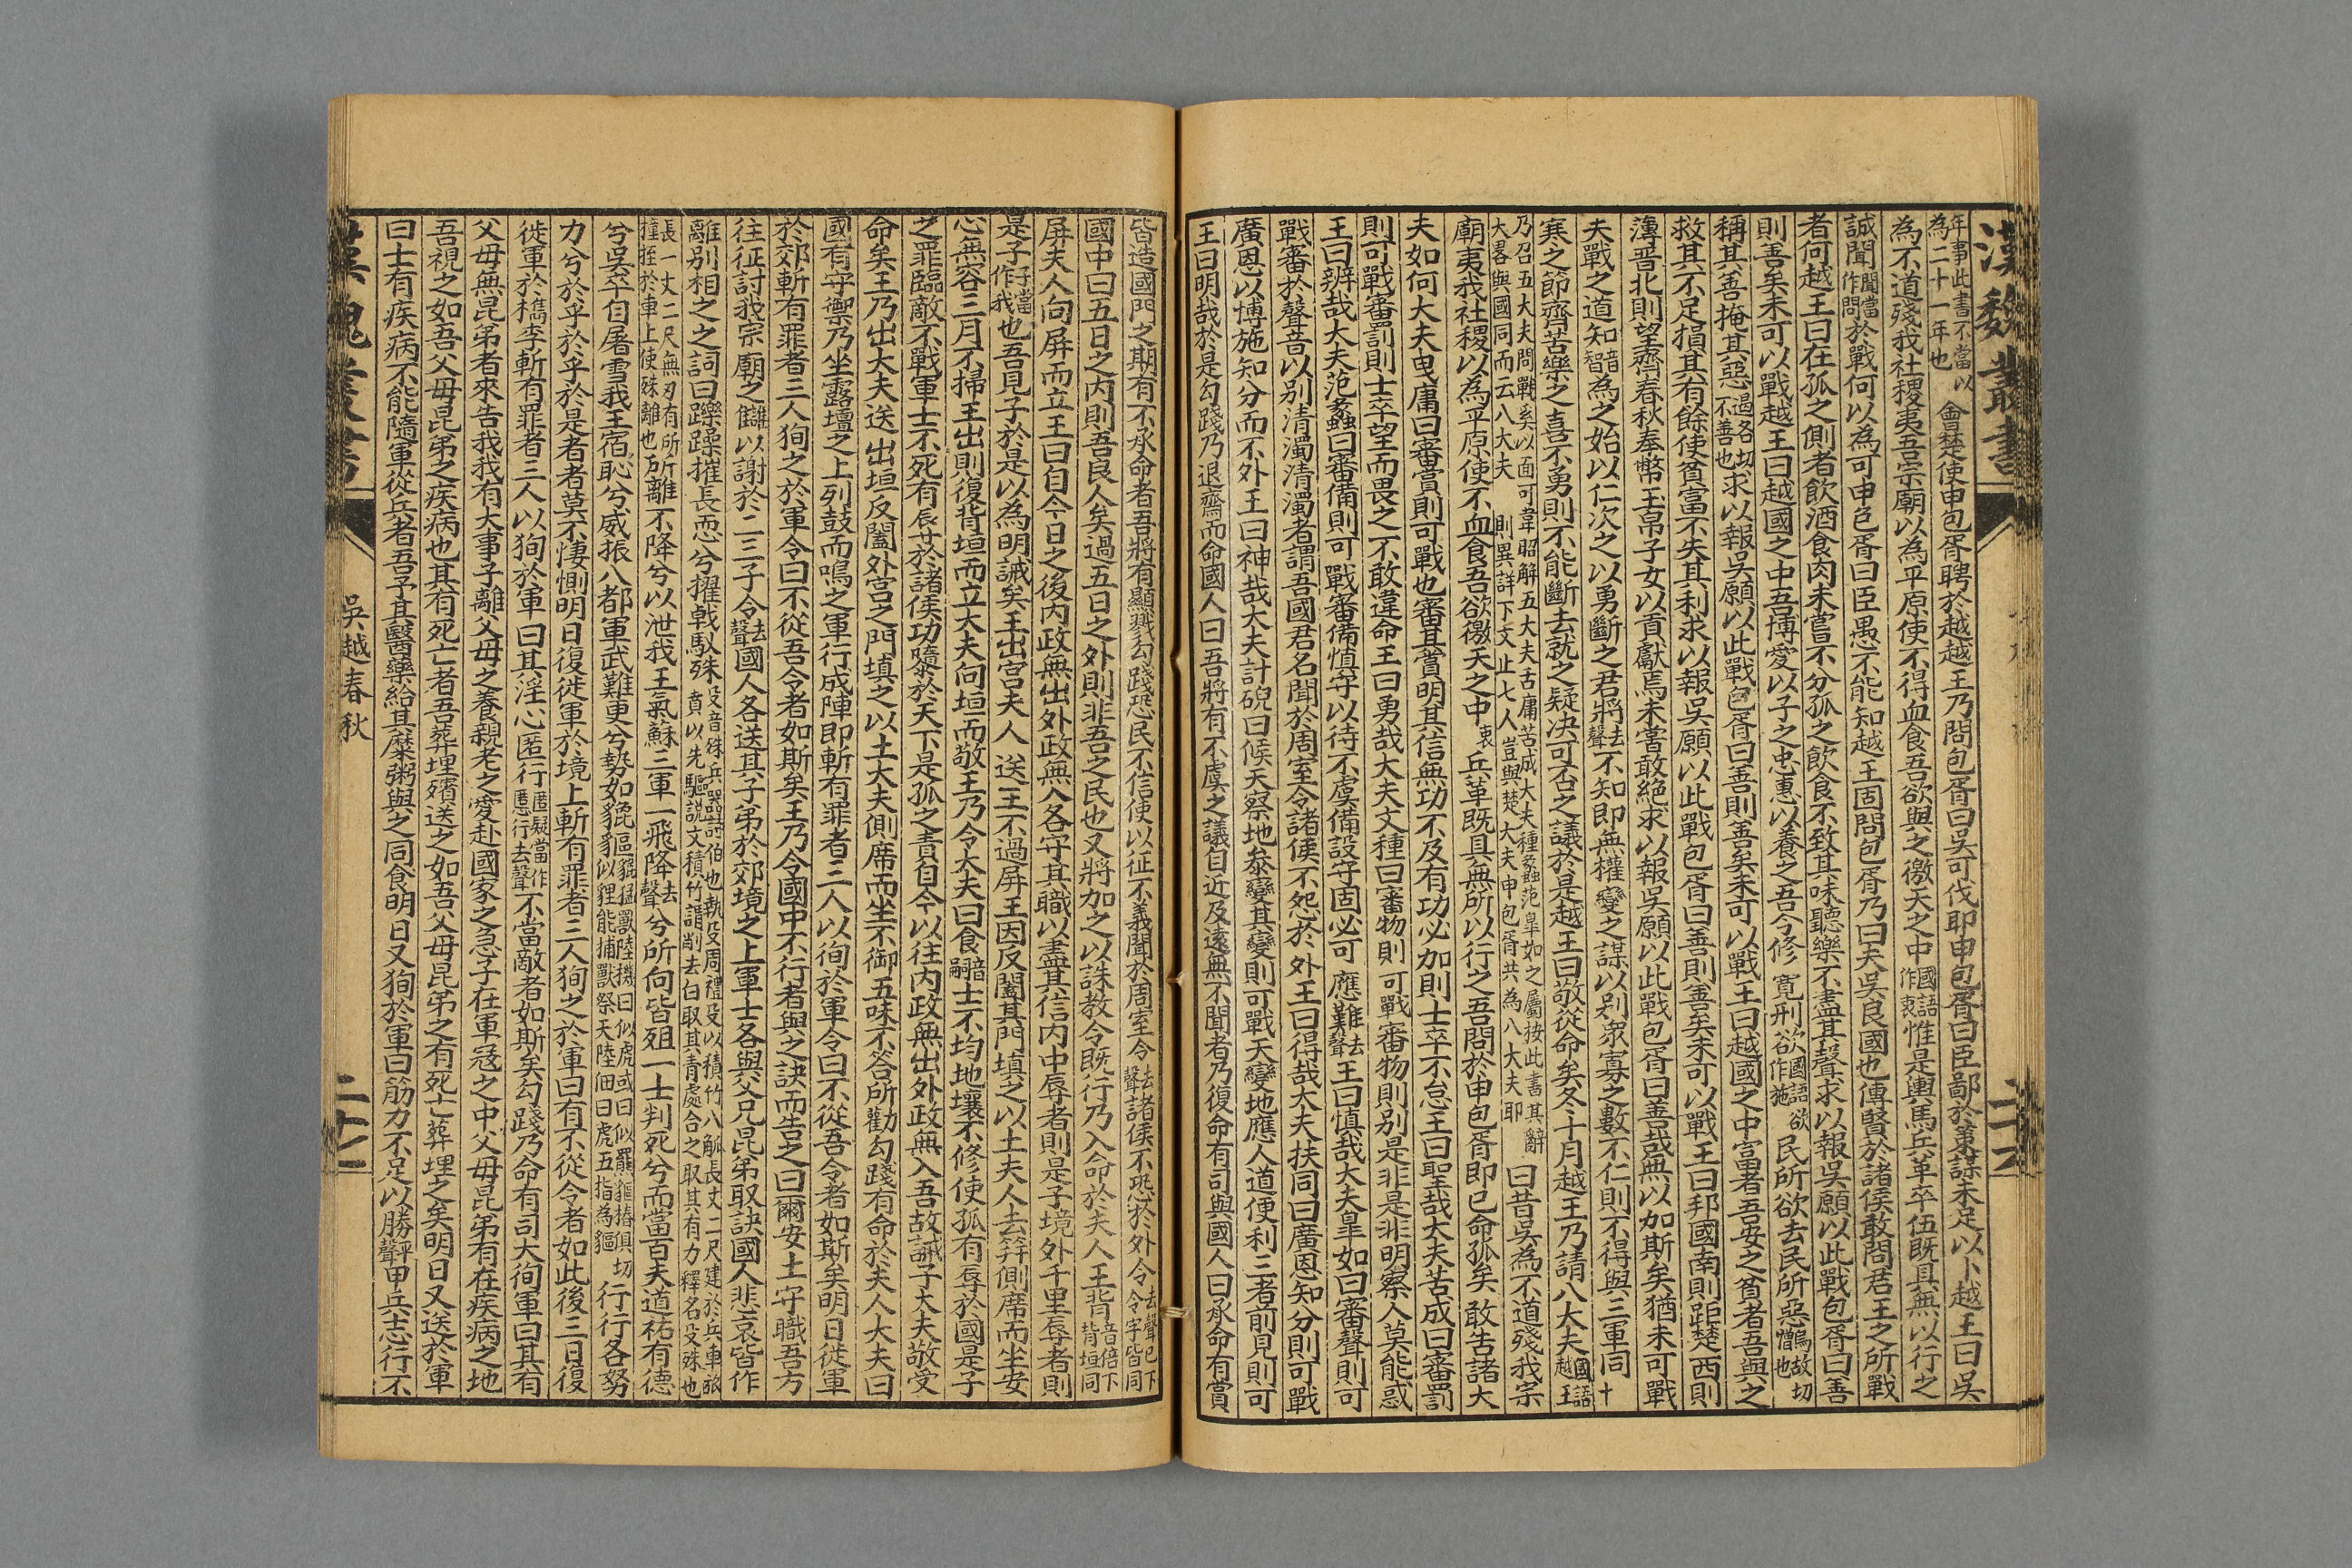 漢魏叢書
年事此書不當以為二十一年也 會楚使申包胥聘於越越王乃問包胥曰吳可伐耶申包胥曰臣鄙於策謀未足以卜越王曰吳
為不道殘我社稷夷吾宗廟以為平原使不得血食吾欲與之徼天之中國語作衷惟是輿馬兵革卒伍既具無以行之
誠聞聞當作問於戰何以為可申包胥曰臣愚不能知越王固問包胥乃曰夫吳良國也傳賢於諸侯敢問君王之所戰
者何越王曰在孤之側者飲酒食肉未嘗不分孤之飲食不致其味聽樂不盡其聲求以報吳願以此戰包胥曰善
則善矣未可以戰越王曰越國之中吾博愛以子之忠惠以養之吾今修寬刑欲國語欲作施民所欲去民所惡憎烏故切也
稱其善掩其惡過各切不善也求以報吳願以此戰包胥曰善則善矣未可以戰王曰越國之中富者吾安之貧者吾與之
救其不足損其有餘使貧富不失其利求以報吳願以此戰包胥曰善則善矣未可以戰王曰邦國南則距楚西則
薄晉北則望齊春秋奉幣玉帛子女以貢獻焉未嘗敢絕求以報吳願以此戰包胥曰善哉無以加斯矣猶未可戰
夫戰之道知音智為之始以仁次之以勇斷之君將去聲不知即無權變之謀以別眾寡之數不仁則不得與三軍同十
寒之節齊苦樂之喜不勇則不能斷去就之疑決可否之議於是越王曰敬從命矣冬十月越王乃請八大夫國語越王
乃召五大夫問戰奚以面可韋昭解五大夫舌庸苦成大夫種蠡范皋如之屬按此書其辭大畧與國同而云八大夫則異詳下文止七人豈與楚大夫申包胥共為八大夫耶曰昔吳為不道殘我宗
廟夷我社稷以為平原使不血食吾欲徼天之中衷兵革既具無所以行之吾問於申包胥即已命孤矣敢告諸大
夫如何大夫曳庸曰審賞則可戰也審其賞明其信無功不及有功必加則士卒不怠王曰聖哉大夫苦成曰審罰
則可戰審罰則士卒望而畏之不敢違命王曰勇哉大夫文種曰審物則可戰審物則別是非是非明察人莫能惑
王曰辨哉大夫范蠡曰審備則可戰審備慎守以待不虞備設守固必可應難去聲王曰慎哉大夫皐如曰審聲則可
戰審於聲音以別清濁清濁者謂吾國君名聞於周室令諸侯不怨於外王曰得哉大夫扶同曰廣恩知分則可戰
廣恩以博施知分而不外王曰神哉大夫計硯曰候天察地叅變其變則可戰天變地應人道便利三者前見則可
王曰明哉於是勾踐乃退齋而命國人曰吾將有不虞之議自近及遠無不聞者乃復命有司與國人曰承命有賞
皆造國門之期有不承命者吾將有顯戮勾踐恐民不信使以征不義聞於周室令去聲諸侯不恐於外令去聲已下令字皆同
國中曰五日之內則吾良人矣過五日之外則非吾之民也又將加之以誅教令既行乃入命於夫人王背音倍下背垣同
屏夫人向屏而立王曰自今日之後內政無出外政無入各守其職以盡其信內中辱者則是子境外千里辱者則
是子子當作我也吾見子於是以為明誡矣王出宮夫人送王不過屏王因反闔其門填之以土夫人去笄側席而坐安
心無容三月不掃王出則復背垣而立大夫向垣而敬王乃令大夫曰食音嗣士不均地壤不修使孤有辱於國是子
之罪臨敵不戰軍士不死有辱於諸侯功隳於天下是孤之責自今以往內政無出外政無入吾故誡子大夫敬受
命矣王乃出大夫送出垣反闔外宮之門填之以土大夫側席而坐不御五味不答所勸勾踐有命於夫人大夫曰
國有守禦乃坐露壇之上列鼓而鳴之軍行成陣即斬有罪者三人以徇於軍令曰不從吾令者如斯矣明日徙軍
於郊斬有罪者三人狥之於軍令曰不從吾令者如斯矣王乃令國中不行者與之訣而告之曰爾安土守職吾方
往征討我宗廟之讎以謝於二三子令去聲國人各送其子弟於郊境之上軍士各與父兄昆弟取訣國人悲哀皆作
離別相之之詞曰躒躁摧長恧兮擢戟馭殊殳音殊兵器詩伯也執殳周禮殳以積竹八觚長丈二尺建於兵車旅賁以先驅說文積竹謂削去白取其青處合之取其有力釋名殳殊也
長一丈二尺無刃有所撞挃於車上使殊離也所離不降兮以泄我王氣蘇三軍一飛降去聲兮所向皆殂一士判死兮而當百夫道祐有德
兮吳卒自屠雪我王宿恥兮威振八都軍武難更兮勢如貔貙貔猛獸陸機曰似虎或曰似羆貙椿俱切似貍能捕獸祭天陸佃曰虎五指為貙行行各努
力兮於乎於乎於是者者莫不悽惻明日復徙軍於境上斬有罪者三人狥之於軍曰有不從令者如此後三日復
徙軍於檇李斬有罪者三人以狥於軍曰其淫心匿行匿疑當作慝行去聲不當敵者如斯矣勾踐乃命有司大徇軍曰其有
父母無昆弟者來告我我有大事子離父母之養親老之愛赴國家之急子在軍寇之中父母昆弟有在疾病之地
吾視之如吾父母昆弟之疾病也其有死亡者吾葬埋殯送之如吾父母昆弟之有死亡葬埋之矣明日又送於軍
曰士有疾病不能隨軍從兵者吾予其醫藥給其糜粥與之同食明日又狥於軍曰筋力不足以勝平聲甲兵志行不
吳越春秋
二十七